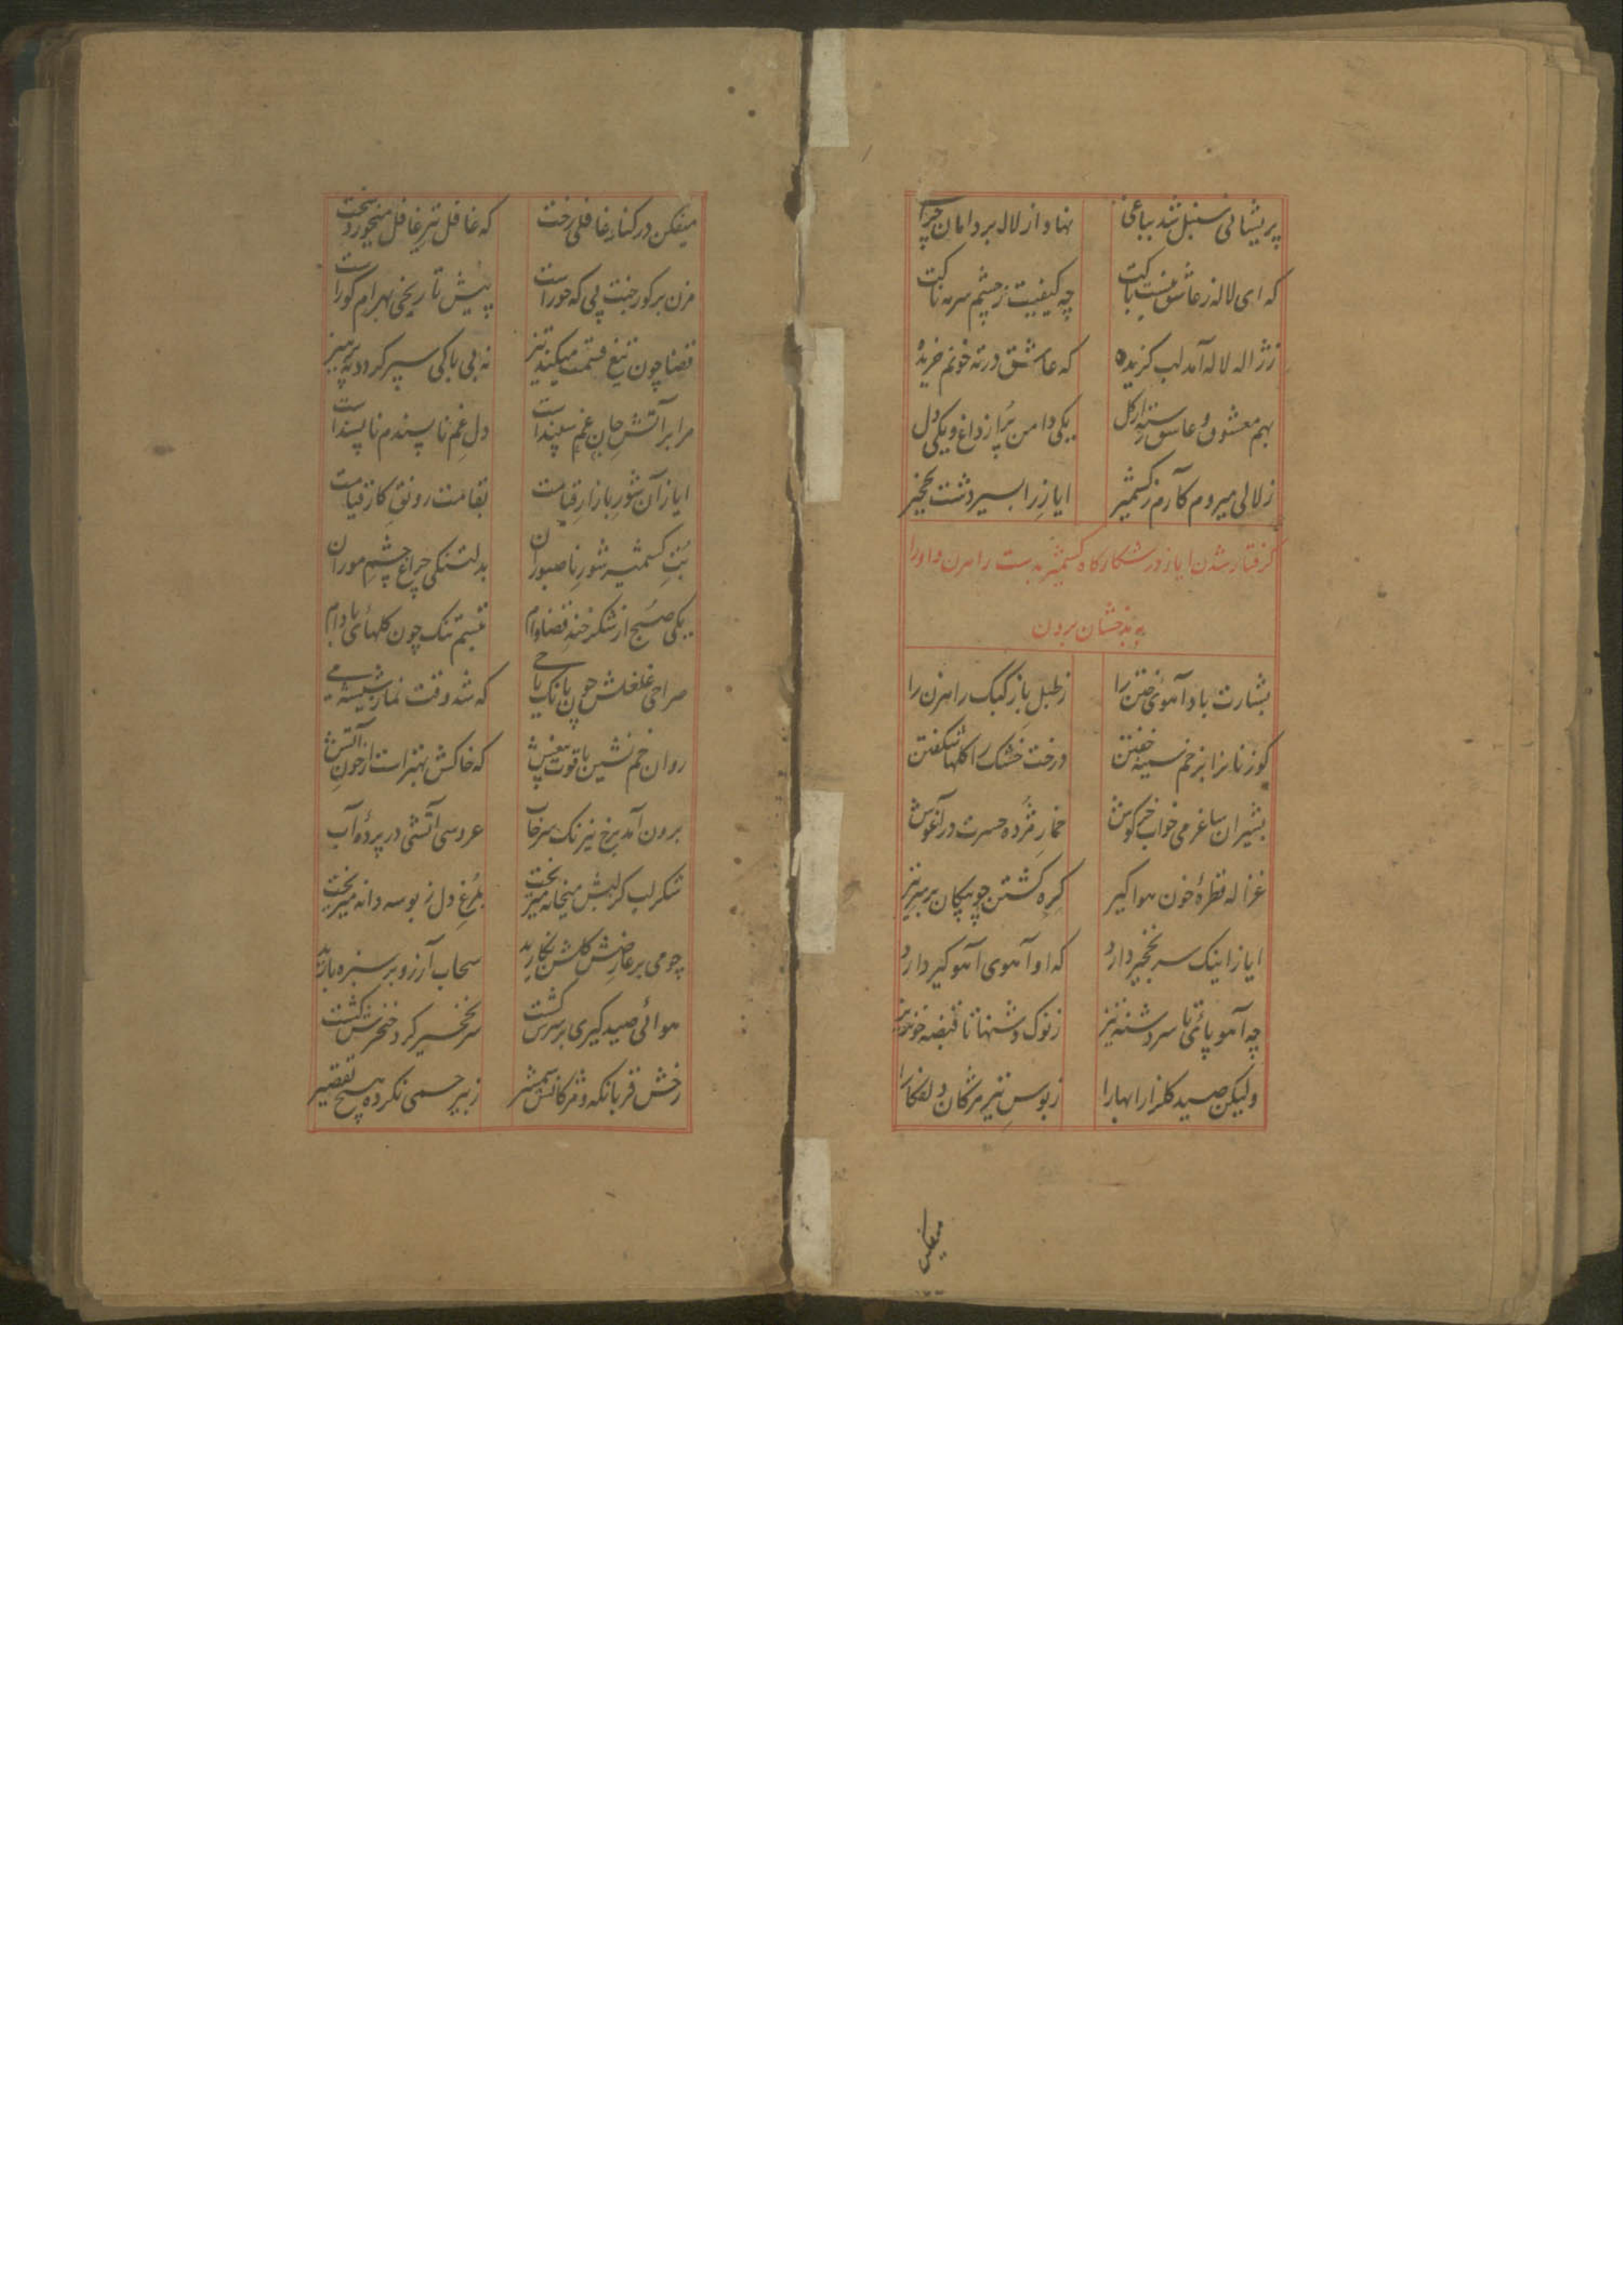 پریشانی سنبل شد بباغی نهاد از لاله بر دامان چراغ
که ای لاله ز عاشق نیست باکت چه کیفیت ز چشم سرمه ناکت
ز ژاله لاله آمد لب گزیده که عاشق در ته خونم خریده
بهم معشوق و عاشق رسته از گل یکی دامن پر از داغ و یکی دل
زلالی میروم کآرم ز کشمیر ایازِ را بسیر دشت نخجیر
گرفتار شدن ایاز در شکارگاه کشمیر بدست راهزن و او را
به بدخشان بردن
بشارت باد آهوی ختن را ز طبل باز کبک راهزن را
گوزنانرا بزخم سینه خفتن درخت خشک را گلها شکفتن
بشیران ساغر می خواب خرگوش خمار مژده حسرت در آغوش
غزاله قطرهٔ خون هوا گیر گره گشتن چو پیکان بر سر تیر
ایاز اینک سر نخجیر دارد که او آهوی آهو گیر دارد
چه آهو پای تا سر دشنه تیز ز نوک دشنها تا قبضه خونریز
ولیکن صید گلزار بهارا ز بوس تیر مژگان دلفگارا
میفکن
میفکن در کنار غافلی رخت که غافل تیر غافل میخورد سخت
مزن بر گور جنت پی که حور است پیش تاریخی بهرام گور است
قضا چون تیغ قسمت میکند تیز نه بی باکی سپر گردد نه پرهیز
مرا بر آتش جان غم سپند است دل غم ناپسندم ناپسند است
ایاز آن شورِ بازار قیامت بقامت رونقِ کار قیامت
بُتِ کشمیر شورِ ناصبوران بدلتنگی چراغ چشمِ موران
یکی صبح از شکر خند قضا وام تبسم تنک چون گلهای بادام
صراحی غلغلش چون بانک یا حی که شد وقت نماز شیشه می
روان خم نشین یاقوت نعش که خاکش بهتر است از خون آتش
برون آمد برخ نیرنگ سرخاب عروسی آتشی در پردهٔ آب
شکر لب کز لبش میخانه میریخت بمرغ دل ز بوسه دانه میریخت
چو می بر عارضش گلشن نگارید سحاب آرزو بر سبزه بارید
هوائی صید گیری بر سرش گشت سر نخجیر گرد خنجرش گشت
رخش قربانگه و مژگانش شمشیر ز بیرحمی نکرده هیچ تقصیر